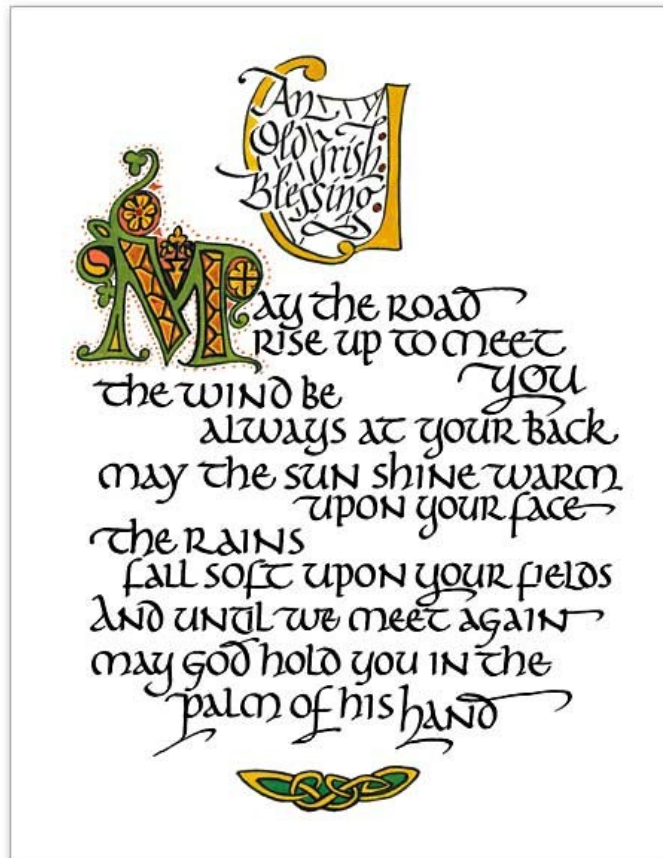 An
Old Irish
Blessing
May the road
rise up to meet
you
the wind be
always at your back
may the sun shine warm
upon your face
the rains
fall soft upon your fields
and until we meet again
may God hold you in the
palm of his hand